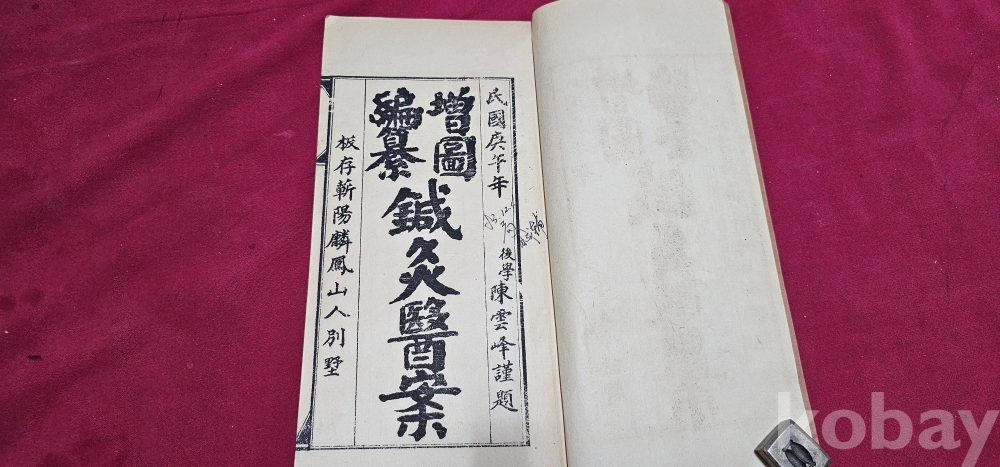 民國庚午年
後學陳雲峰謹題
增圖
編纂
鍼灸醫案
板存蘄陽麟鳳山人別墅
kobay